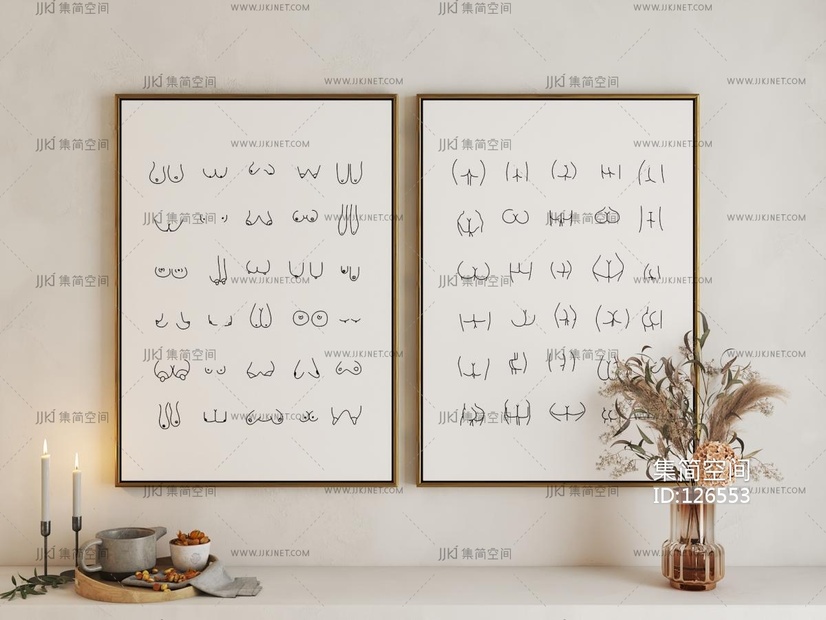 JJKJ 集简空间
WWW.JJKJNET.COM
JJKJ 集简空间
WWW.JJKJNET.COM
JJKJ 集简空间
WWW.JJKJNET.COM
JJKJ 集简空间
WWW.JJKJNET.COM
WWW.JJKJNET.COM
JJKJ 集简空间
WWW.JJKJNET.COM
JJKJ 集简空间
WWW.JJKJNET.COM
JJKJ 集简空间
WWW.JJKJNET.COM
JJKJ 集简空间
WWW.JJKJNET.COM
WWW.JJKJNET.COM
JJKJ 集简空间
WWW.JJKJNET.COM
JJKJ 集简空间
WWW.JJKJNET.COM
JJKJ 集简空间
WWW.JJKJNET.COM
JJKJ 集简空间
WWW.JJKJNET.COM
WWW.JJKJNET.COM
JJKJ 集简空间
WWW.JJKJNET.COM
JJKJ 集简空间
WWW.JJKJNET.COM
集简空间
ID:126553
JJKJ 集简空间
WWW.JJKJNET.COM
JJKJ 集简空间
WWW.JJKJNET.COM
JJKJ 集简空间
WWW.JJKJNET.COM
JJKJ 集简空间
WWW.JJKJNET.COM